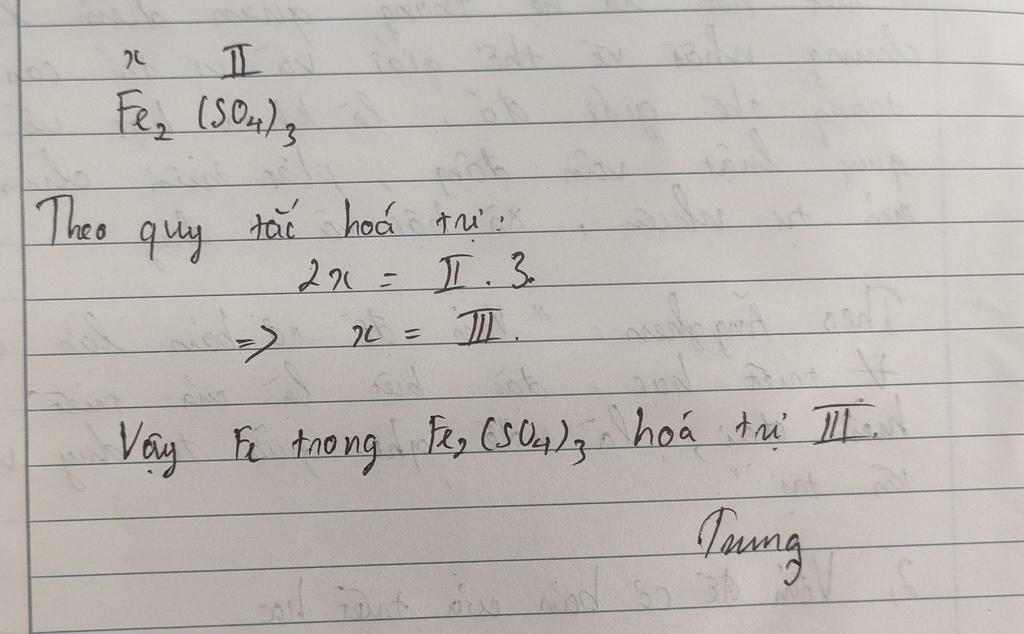 x II
Fe₂ (SO₄)₃
Theo quy tắc hoá trị:
2x = II . 3.
=> x = III.
Vậy Fe trong Fe₂(SO₄)₃ hoá trị III.
Trung